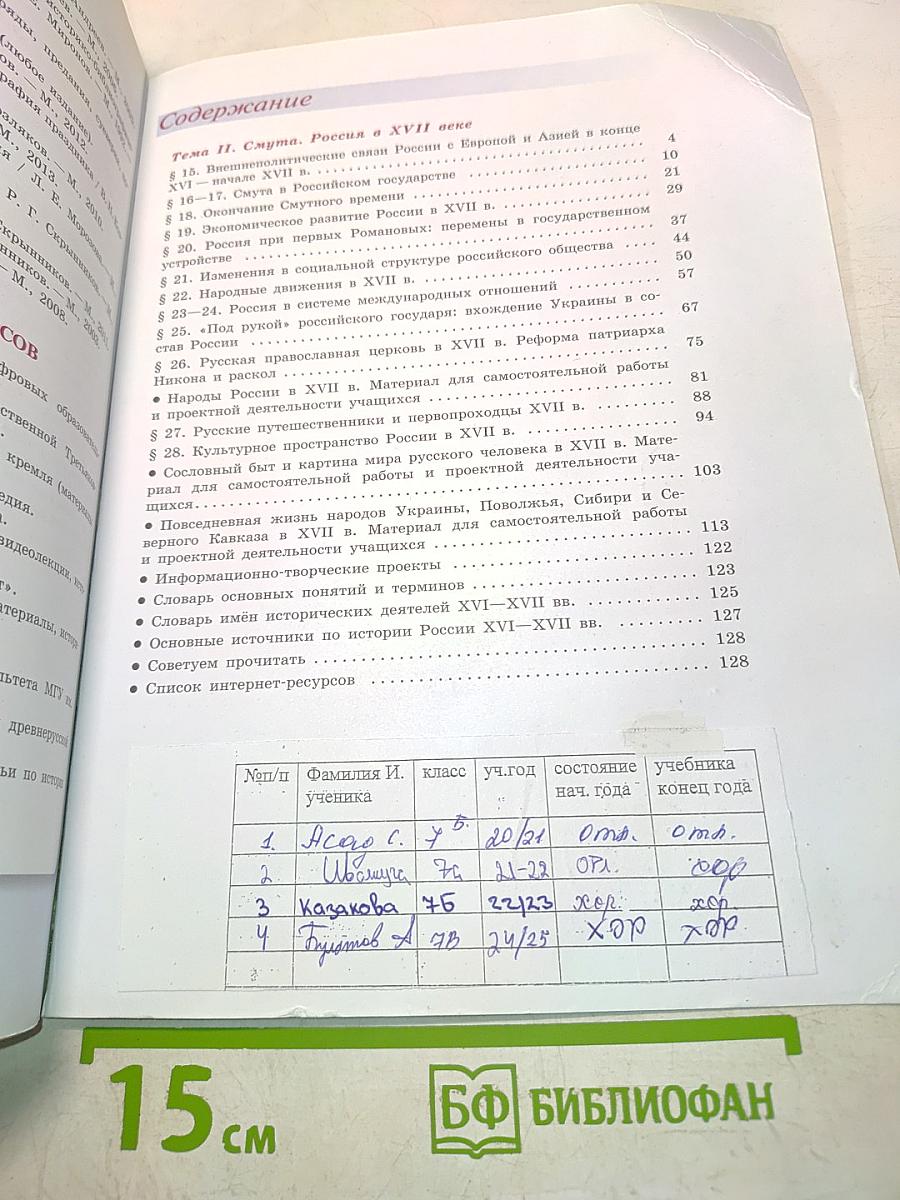 (любое издание)
М., 2012.
М., 2013.
Р. Г. Скрынников.
М., 2008.
СОВ
фровых образовательных
ственной Третьяков
кремля (материалы
едия.
видеолекции, исто
г».
атериалы, истори
льтета МГУ им.
древнерусской
ьи по истории
Содержание
Тема II. Смута. Россия в XVII веке
§ 15. Внешнеполитические связи России с Европой и Азией в конце
XVI — начале XVII в. 4
§ 16—17. Смута в Российском государстве 10
§ 18. Окончание Смутного времени 21
§ 19. Экономическое развитие России в XVII в. 29
§ 20. Россия при первых Романовых: перемены в государственном
устройстве 37
§ 21. Изменения в социальной структуре российского общества 44
§ 22. Народные движения в XVII в. 50
§ 23—24. Россия в системе международных отношений 57
§ 25. «Под рукой» российского государя: вхождение Украины в со-
став России 67
§ 26. Русская православная церковь в XVII в. Реформа патриарха
Никона и раскол 75
• Народы России в XVII в. Материал для самостоятельной работы
и проектной деятельности учащихся 81
§ 27. Русские путешественники и первопроходцы XVII в. 88
§ 28. Культурное пространство России в XVII в. 94
• Сословный быт и картина мира русского человека в XVII в. Мате-
риал для самостоятельной работы и проектной деятельности уча-
щихся 103
• Повседневная жизнь народов Украины, Поволжья, Сибири и Се-
верного Кавказа в XVII в. Материал для самостоятельной работы
и проектной деятельности учащихся 113
• Информационно-творческие проекты 122
• Словарь основных понятий и терминов 123
• Словарь имён исторических деятелей XVI—XVII вв. 125
• Основные источники по истории России XVI—XVII вв. 127
• Советуем прочитать 128
• Список интернет-ресурсов 128
№п/п Фамилия И. класс уч.год состояние учебника
ученика нач. года конец года
1. С. 7 Б. 20/21 отл. отл.
2 21-22 отл. хор
3 Казакова 7Б 22/23 хор. хор.
4 Булатов А 7В 24/25 хор хор.
15 см
БФ БИБЛИОФАН